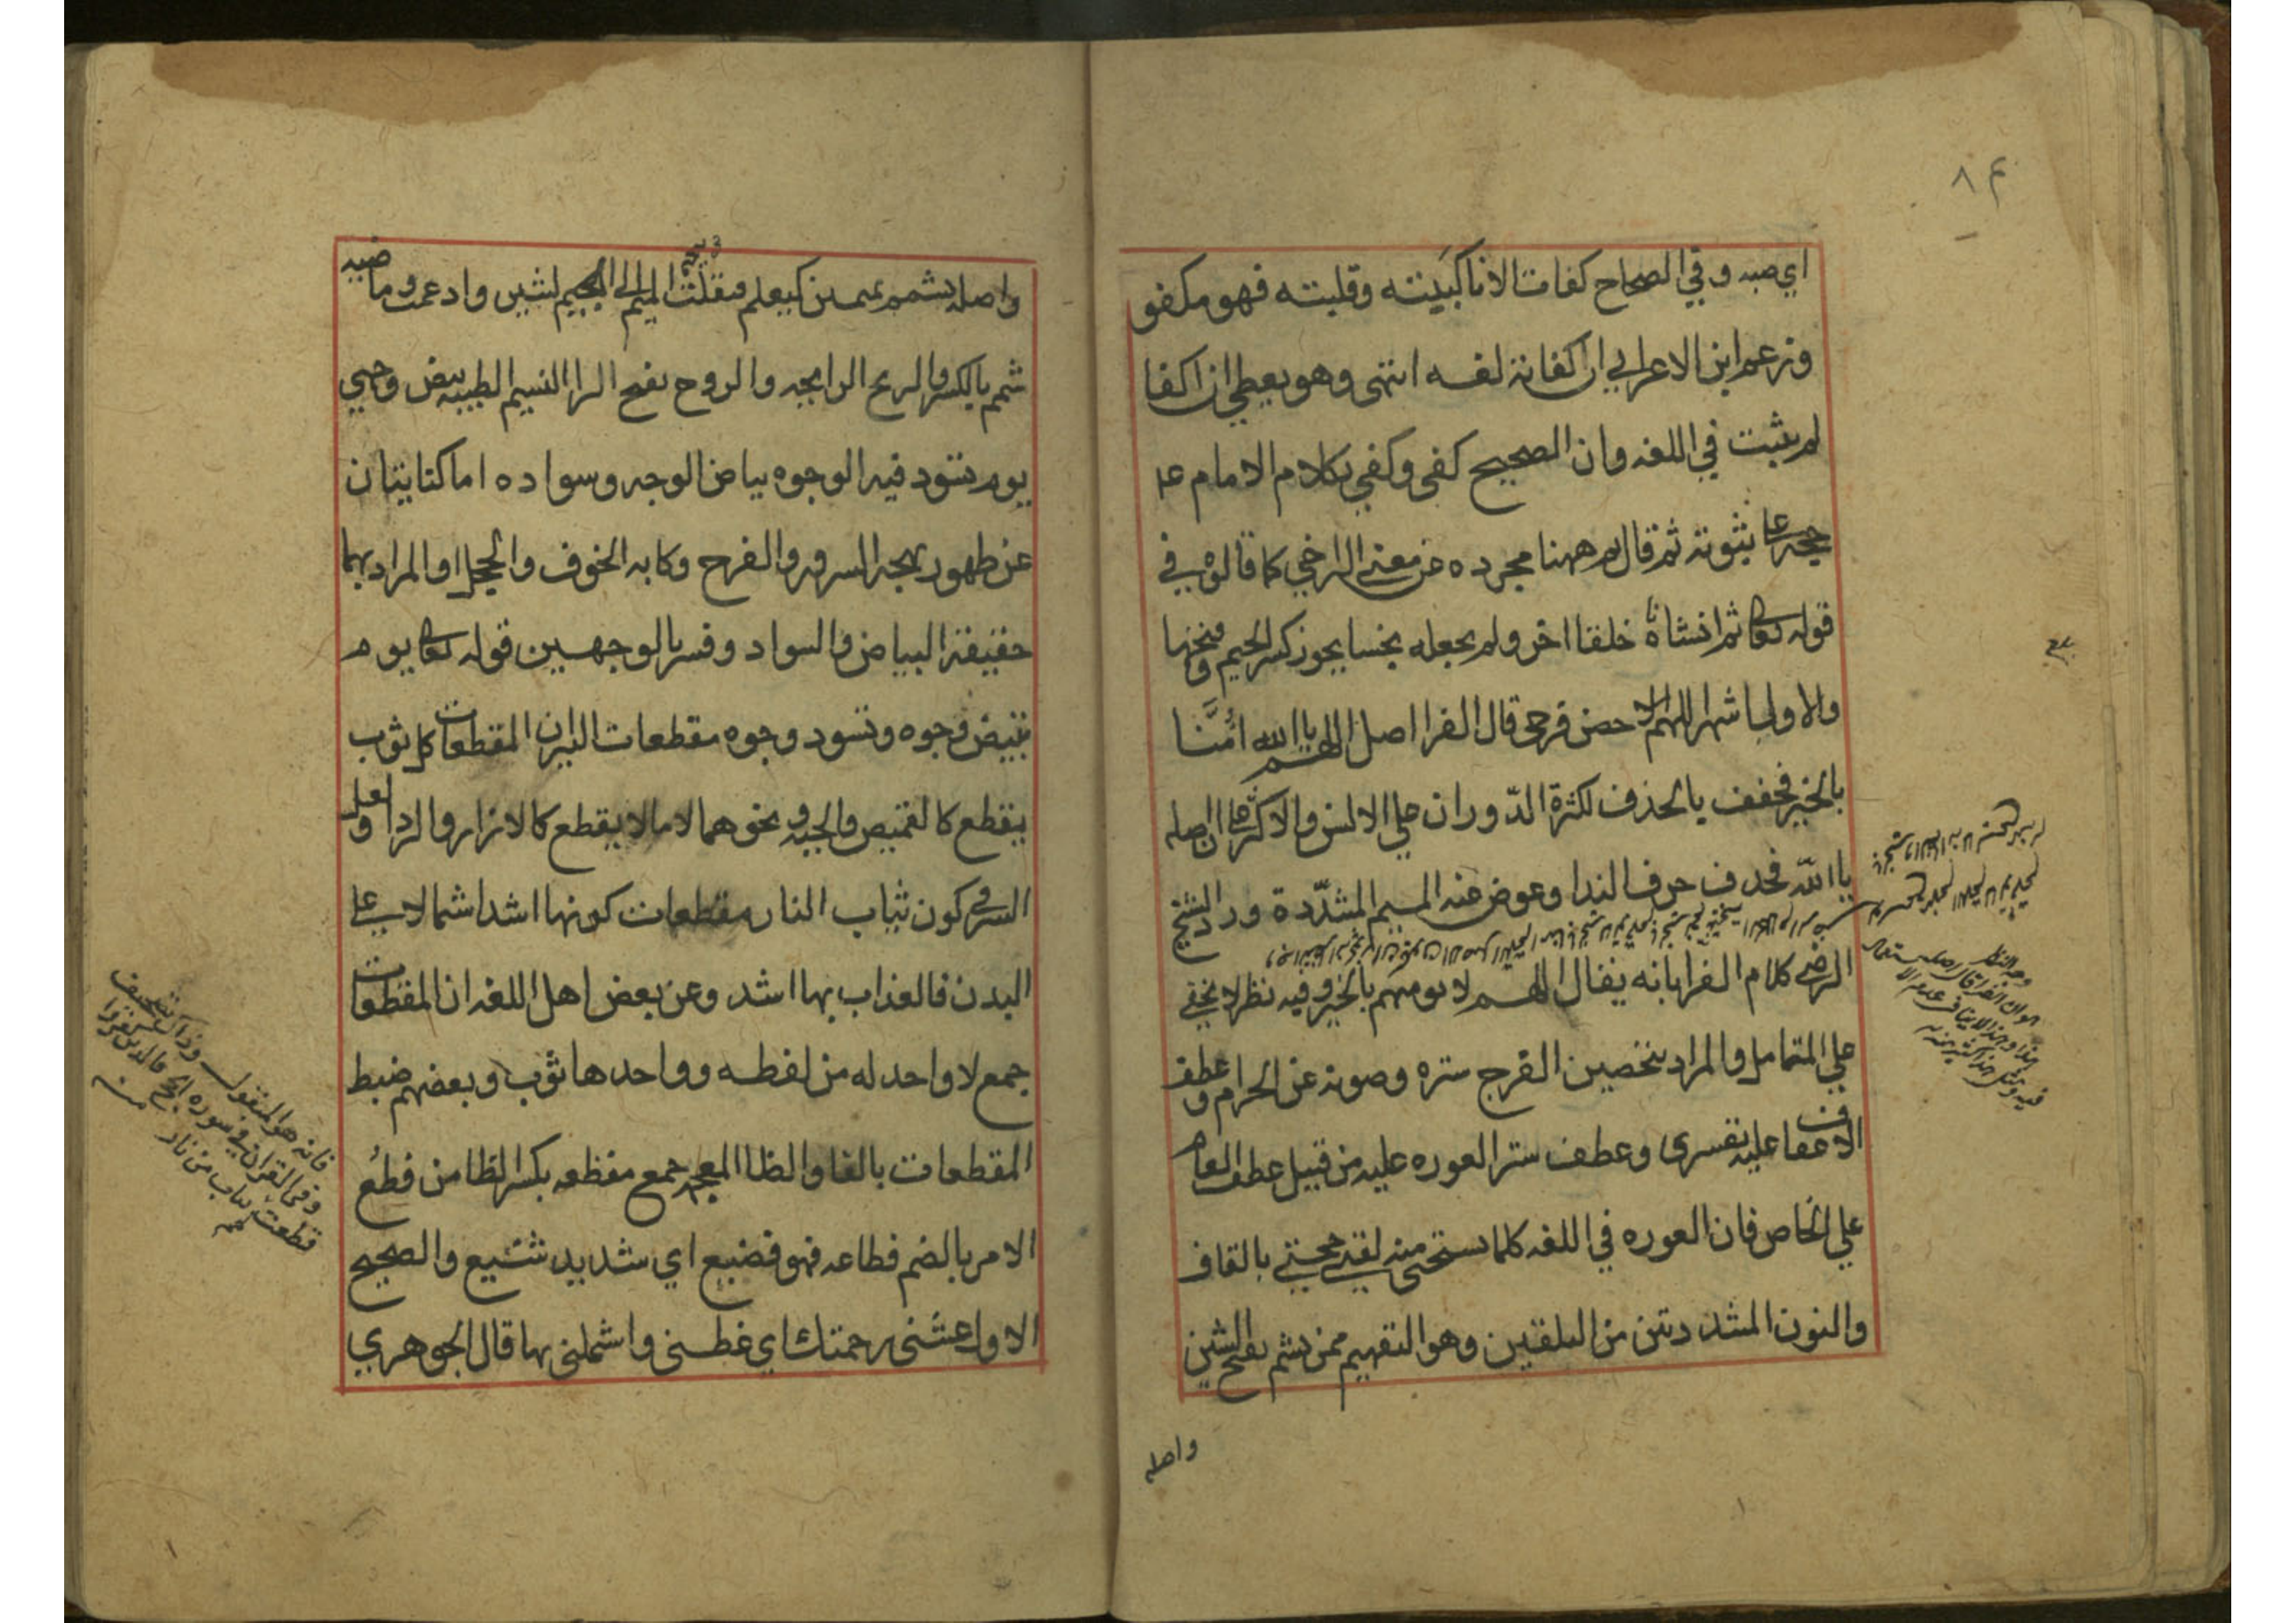 ٨٣
اي صبه وفي الصحاح كفات الانا كببته وقلبته فهو مكفو
وزعم ابن الاعرابي ان اكفاته لغه انتهى وهو يعطي ان اكفا
لم يثبت في اللغه وان الصحيح كفى وكفي بكلام الامام ع
حجه على ثبوته ثم قال ثم ههنا مجرده عن معنى التراخي كما قالوه في
قوله تعالى ثم انشاناه خلقا اخر ولم يجعله نجسا يجوز كسر الجيم وفتحها
والاولى اشهر اللهم حصن فرجي قال الفرا اصل اللهم يا الله امّنا
بالخير فخفف بالحذف لكثرة الدّوران على الالسن والاكثر على ان اصله
يا الله فحذف حرف الندا وعوض عنه الميم المشدّدة ورد الشيخ
الرضي كلام الفرا بانه يقال اللهم لا تومهم بالخير وفيه نظر لا يخفى
علي المتامل والمراد بتحصين الفرج ستره وصونه عن الحرام وعطف
الاعفاف عليه تفسيري وعطف ستر العوره عليه من قبيل عطف العام
علي الخاص فان العوره في اللغه كلما يستحى منه لقني حجتي بالقاف
والنون المشددتين من التلقين وهو التفهيم ممن يشم بفتح الشين
واصله
واصله يشمم كيعلم فنقلت فتحة الميم الى الشين وادغمت وماضيه
شمم بالكسر والريح الرايحه والروح بفتح الرا النسيم الطيبه بيض وجهي
يوم تسود فيه الوجوه بياض الوجه وسواده اما كنايتان
عن ظهور بهجه السرور والفرح وكابه الخوف والخجل او المراد بهما
حقيقة البياض والسواد وفسر بالوجهين قوله تعالى يوم
تبيض وجوه وتسود وجوه مقطعات النيران المقطعات كل ثوب
يقطع كالقميص والجبه ونحوهما لا ما لا يقطع كالازار والردا ولعل
السر في كون ثياب النار مقطعات كونها اشد اشتمالا على
البدن فالعذاب بها اشد وعن بعض اهل اللغه ان المقطعات
جمع لا واحد له من لفظه وواحدها ثوب وبعضهم ضبط
المقطعات بالفا والظا المعجمه جمع مفظعه بكسر الظا من فظُع
الامر بالضم فظاعه فهو فضيع اي شديد شنيع والصحيح
الاول غشني رحمتك اي غطني واشملني بها قال الجوهري
فانه هو المنقول
وفي القران في سوره الحج فالذين كفروا
قطعت لهم ثياب من نار منه